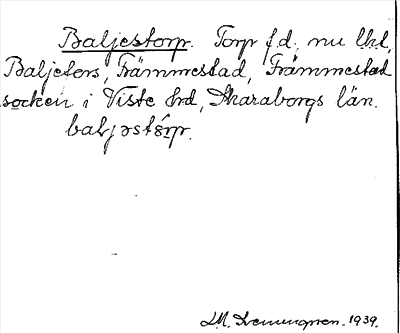 Baljestorp. Torp f.d., nu lht,
Baljefors, Främmestad, Främmestad
socken i Viste hrd, Skaraborgs län.
baljestórp.
1939.